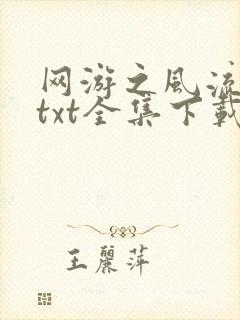 网游之风流
txt全集下载
王丽萍